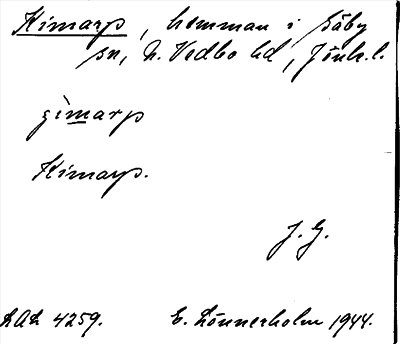 Kimarp, hemman i Säby
sn, N. Vedbo hd, Jönk. l.
gimarp
Kimarp.
J. G.
LAL 4259. E. Lönnerholm 1944.